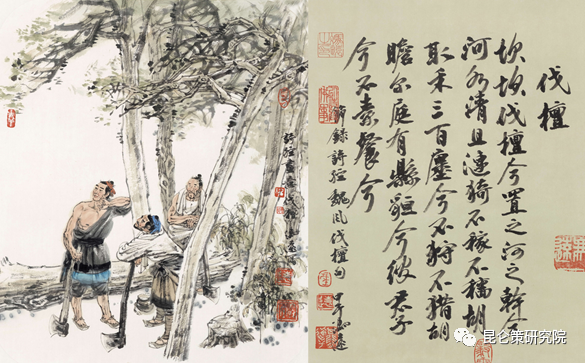 伐檀
坎坎伐檀兮置之河之幹兮
河水清且漣猗不稼不穡胡
取禾三百廛兮不狩不猎胡
瞻尔庭有縣貆兮彼君子
兮不素餐兮
節錄詩經魏風伐檀句 甲午
昆仑策研究院